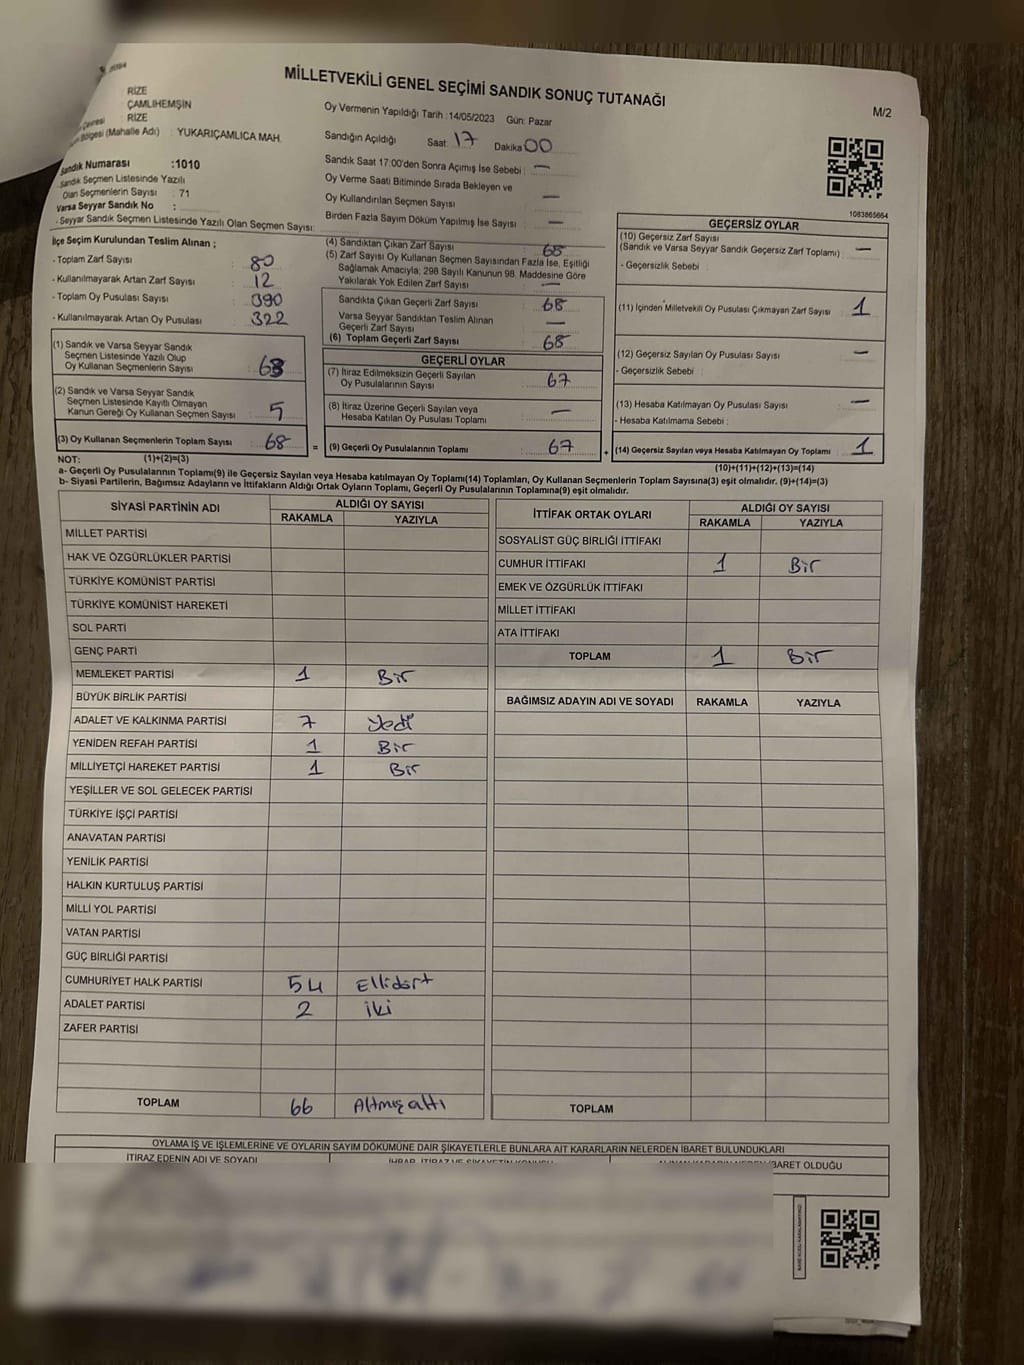 MİLLETVEKİLİ GENEL SEÇİMİ SANDIK SONUÇ TUTANAĞI
M/2
RİZE
ÇAMLIHEMŞİN
RİZE
Bölgesi (Mahalle Adı) : YUKARIÇAMLICA MAH.
Sandık Numarası :1010
Sandık Seçmen Listesinde Yazılı
Olan Seçmenlerin Sayısı : 71
Varsa Seyyar Sandık No :
- Seyyar Sandık Seçmen Listesinde Yazılı Olan Seçmen Sayısı:
Oy Vermenin Yapıldığı Tarih :14/05/2023 Gün: Pazar
Sandığın Açıldığı Saat: 17 Dakika 00
Sandık Saat 17:00'den Sonra Açımış İse Sebebi : —
Oy Verme Saati Bitiminde Sırada Bekleyen ve
Oy Kullandırılan Seçmen Sayısı : —
Birden Fazla Sayım Döküm Yapılmış İse Sayısı : —
1083865664
İlçe Seçim Kurulundan Teslim Alınan ;
- Toplam Zarf Sayısı : 80
- Kullanılmayarak Artan Zarf Sayısı : 12
- Toplam Oy Pusulası Sayısı : 390
- Kullanılmayarak Artan Oy Pusulası : 322
(1) Sandık ve Varsa Seyyar Sandık
Seçmen Listesinde Yazılı Olup
Oy Kullanan Seçmenlerin Sayısı : 63
(2) Sandık ve Varsa Seyyar Sandık
Seçmen Listesinde Kayıtlı Olmayan
Kanun Gereği Oy Kullanan Seçmen Sayısı : 5
(3) Oy Kullanan Seçmenlerin Toplam Sayısı : 68 =
(4) Sandıktan Çıkan Zarf Sayısı : 68
(5) Zarf Sayısı Oy Kullanan Seçmen Sayısından Fazla İse, Eşitliği
Sağlamak Amacıyla; 298 Sayılı Kanunun 98. Maddesine Göre
Yakılarak Yok Edilen Zarf Sayısı : —
Sandıkta Çıkan Geçerli Zarf Sayısı : 68
Varsa Seyyar Sandıktan Teslim Alınan
Geçerli Zarf Sayısı : —
(6) Toplam Geçerli Zarf Sayısı : 68
GEÇERLİ OYLAR
(7) İtiraz Edilmeksizin Geçerli Sayılan
Oy Pusulalarının Sayısı : 67
(8) İtiraz Üzerine Geçerli Sayılan veya
Hesaba Katılan Oy Pusulaları Toplamı : —
(9) Geçerli Oy Pusulalarının Toplamı : 67 +
GEÇERSİZ OYLAR
(10) Geçersiz Zarf Sayısı
(Sandık ve Varsa Seyyar Sandık Geçersiz Zarf Toplamı) : —
- Geçersizlik Sebebi :
(11) İçinden Milletvekili Oy Pusulası Çıkmayan Zarf Sayısı : 1
(12) Geçersiz Sayılan Oy Pusulası Sayısı : —
- Geçersizlik Sebebi :
(13) Hesaba Katılmayan Oy Pusulası Sayısı : —
- Hesaba Katılmama Sebebi :
(14) Geçersiz Sayılan veya Hesaba Katılmayan Oy Pusulası Toplamı : 1
NOT: (1)+(2)=(3)
(10)+(11)+(12)+(13)=(14)
a- Geçerli Oy Pusulalarının Toplamı(9) ile Geçersiz Sayılan veya Hesaba katılmayan Oy Toplamı(14) Toplamları, Oy Kullanan Seçmenlerin Toplam Sayısına(3) eşit olmalıdır. (9)+(14)=(3)
b- Siyasi Partilerin, Bağımsız Adayların ve İttifakların Aldığı Ortak Oyların Toplamı, Geçerli Oy Pusulalarının Toplamına(9) eşit olmalıdır.
SİYASİ PARTİNİN ADI ALDIĞI OY SAYISI
RAKAMLA YAZIYLA
MİLLET PARTİSİ
HAK VE ÖZGÜRLÜKLER PARTİSİ
TÜRKİYE KOMÜNİST PARTİSİ
TÜRKİYE KOMÜNİST HAREKETİ
SOL PARTİ
GENÇ PARTİ
MEMLEKET PARTİSİ 1 Bir
BÜYÜK BİRLİK PARTİSİ
ADALET VE KALKINMA PARTİSİ 7 Yedi
YENİDEN REFAH PARTİSİ 1 Bir
MİLLİYETÇİ HAREKET PARTİSİ 1 Bir
YEŞİLLER VE SOL GELECEK PARTİSİ
TÜRKİYE İŞÇİ PARTİSİ
ANAVATAN PARTİSİ
YENİLİK PARTİSİ
HALKIN KURTULUŞ PARTİSİ
MİLLİ YOL PARTİSİ
VATAN PARTİSİ
GÜÇ BİRLİĞİ PARTİSİ
CUMHURİYET HALK PARTİSİ 54 Ellidört
ADALET PARTİSİ 2 İki
ZAFER PARTİSİ
TOPLAM 66 Altmışaltı
İTTİFAK ORTAK OYLARI ALDIĞI OY SAYISI
RAKAMLA YAZIYLA
SOSYALİST GÜÇ BİRLİĞİ İTTİFAKI
CUMHUR İTTİFAKI 1 Bir
EMEK VE ÖZGÜRLÜK İTTİFAKI
MİLLET İTTİFAKI
ATA İTTİFAKI
TOPLAM 1 Bir
BAĞIMSIZ ADAYIN ADI VE SOYADI RAKAMLA YAZIYLA
TOPLAM
OYLAMA İŞ VE İŞLEMLERİNE VE OYLARIN SAYIM DÖKÜMÜNE DAİR ŞİKAYETLERLE BUNLARA AİT KARARLARIN NELERDEN İBARET BULUNDUKLARI
İTİRAZ EDENİN ADI VE SOYADI İBARET OLDUĞU